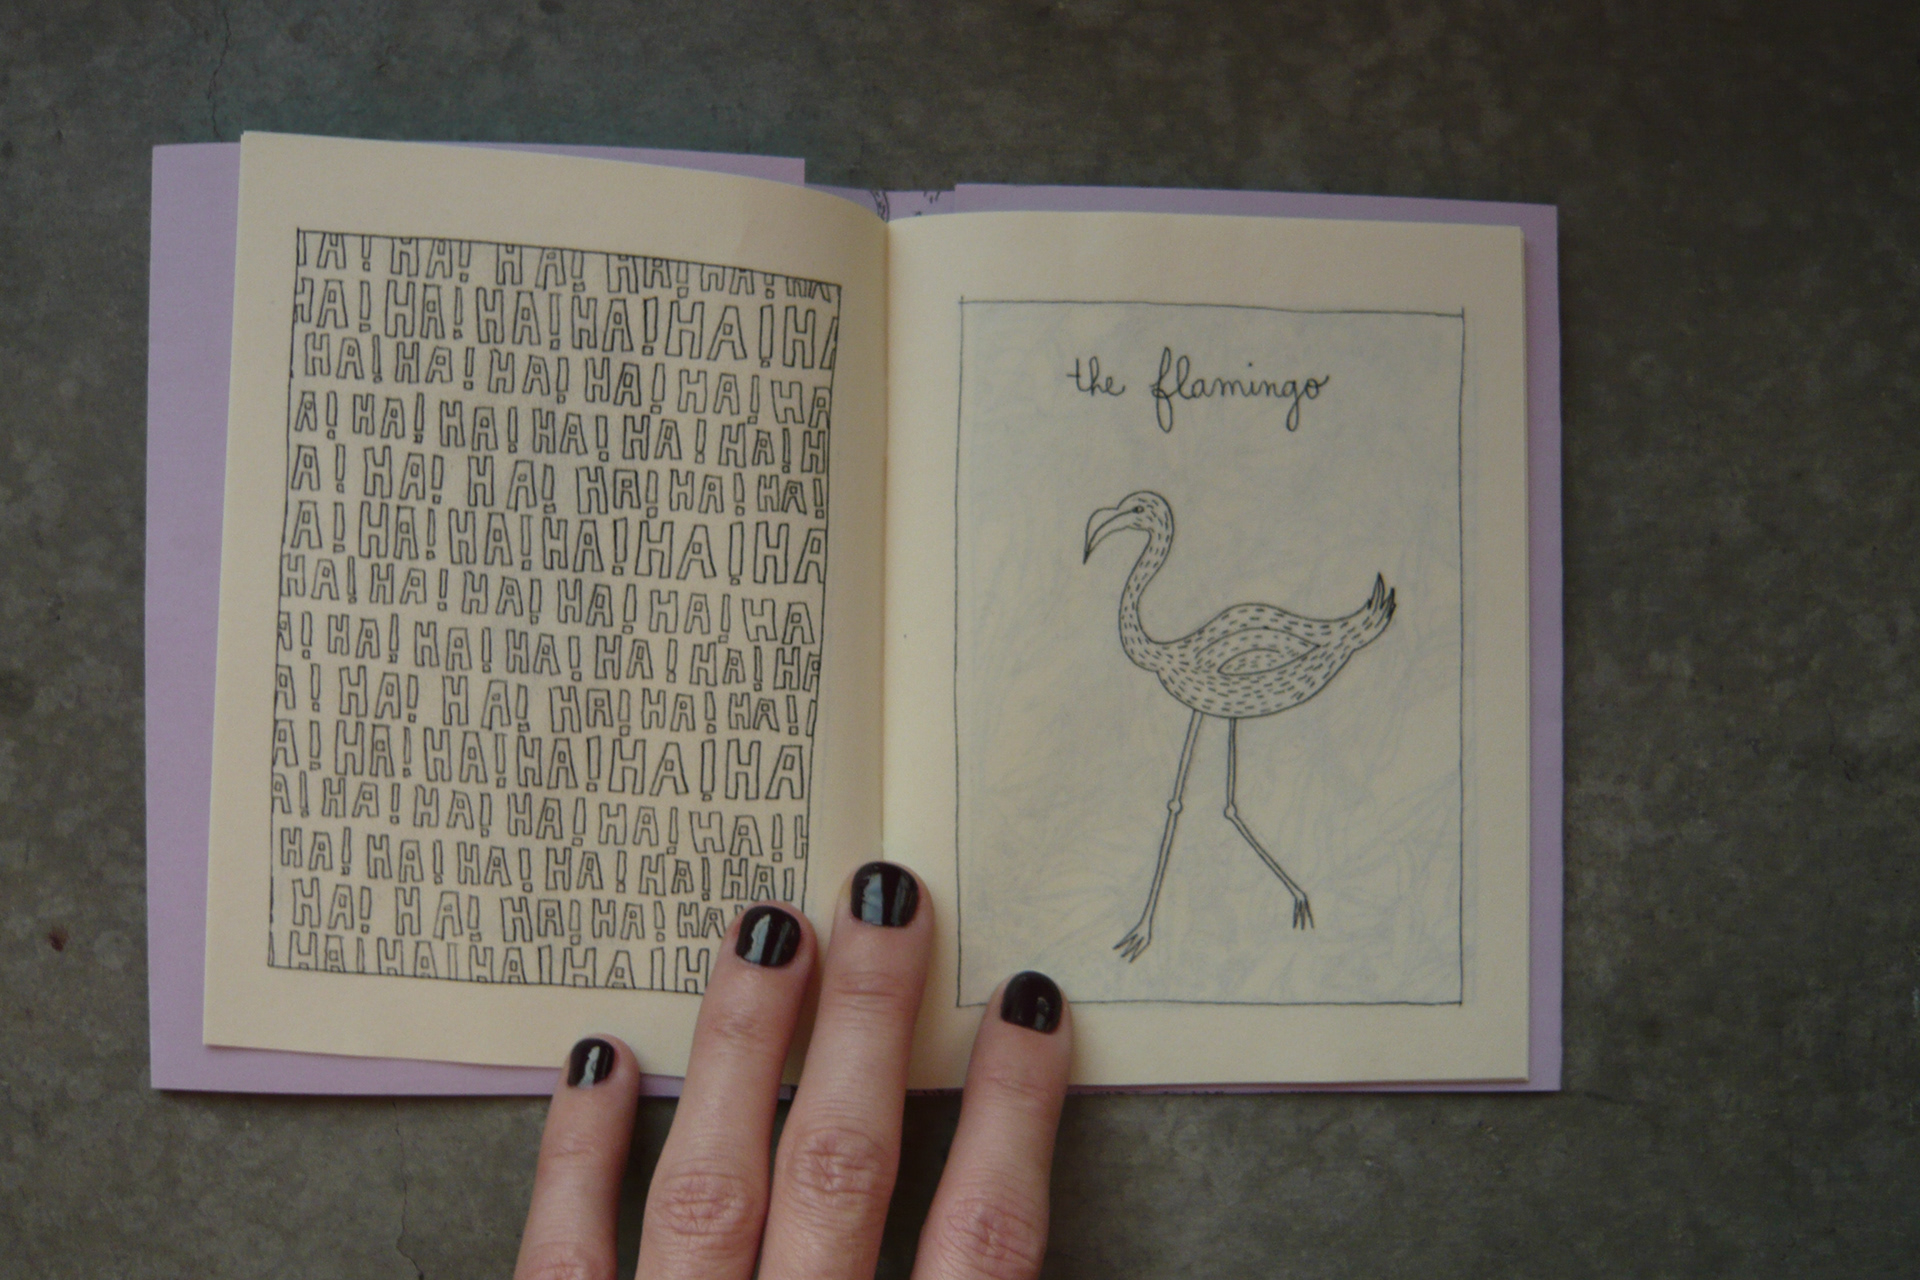 HA! HA! HA! HA! HA! HA
HA! HA! HA! HA! HA! HA
HA! HA! HA! HA! HA! HA
A! HA! HA! HA! HA! HA! H
A! HA! HA! HA! HA! HA!
A! HA! HA! HA! HA! HA
HA! HA! HA! HA! HA! HA
A! HA! HA! HA! HA! HA! HA
A! HA! HA! HA! HA! HA!
A! HA! HA! HA! HA! HA
A! HA! HA! HA! HA! HA! H
HA! HA! HA! HA! HA! HA!
HA! HA! HA! HA! HA
HA! HA! HA! HA! H
the flamingo